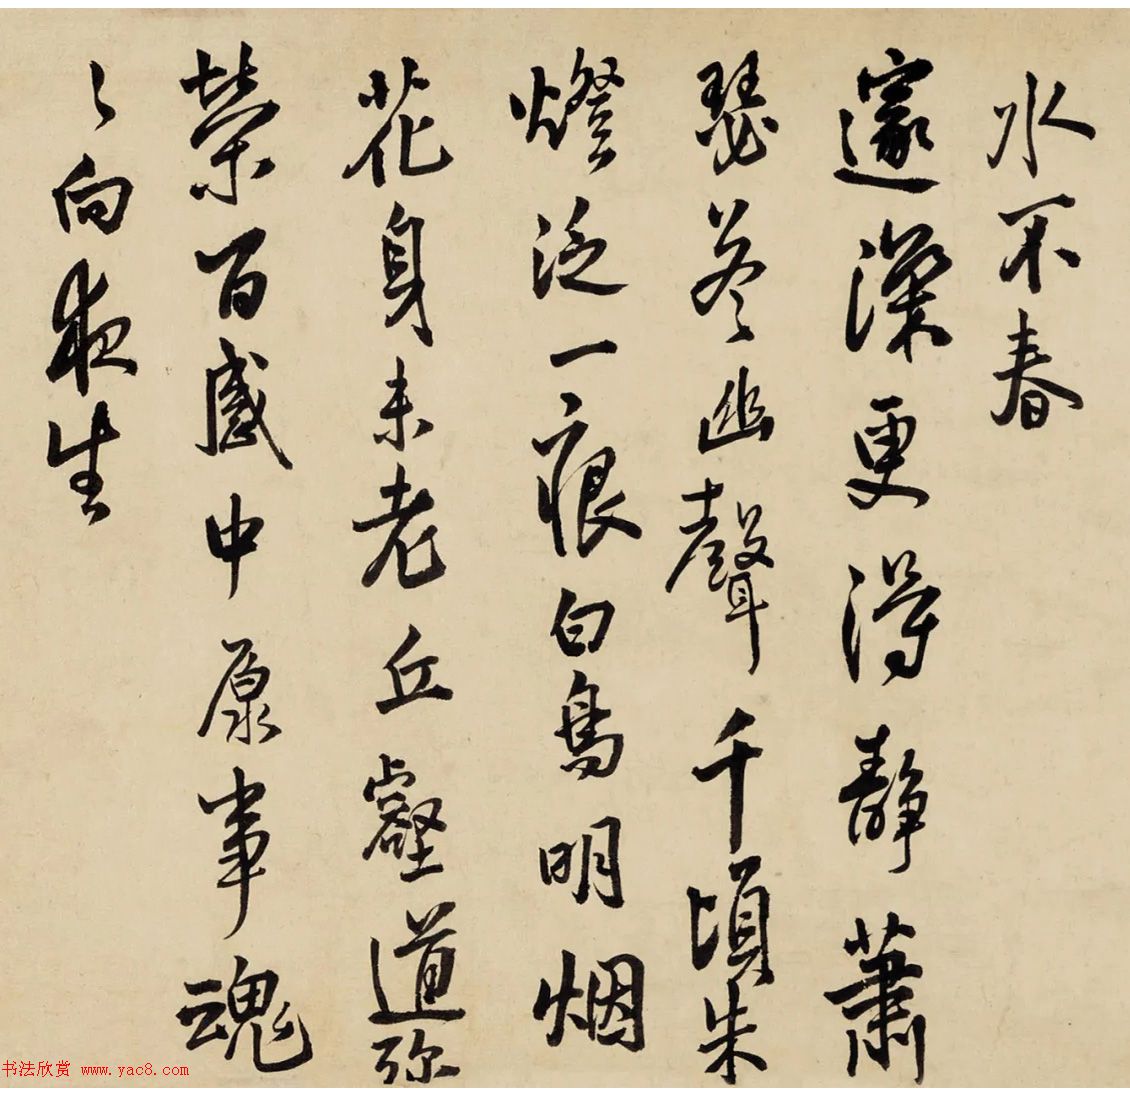 水不春
邃深更得静蕭
瑟琴幽聲千頃朱
燈泛一痕白鳥明烟
花身未老丘壑道弥
榮百感中原事魂
〻向夜生
书法欣赏 www.yac8.com